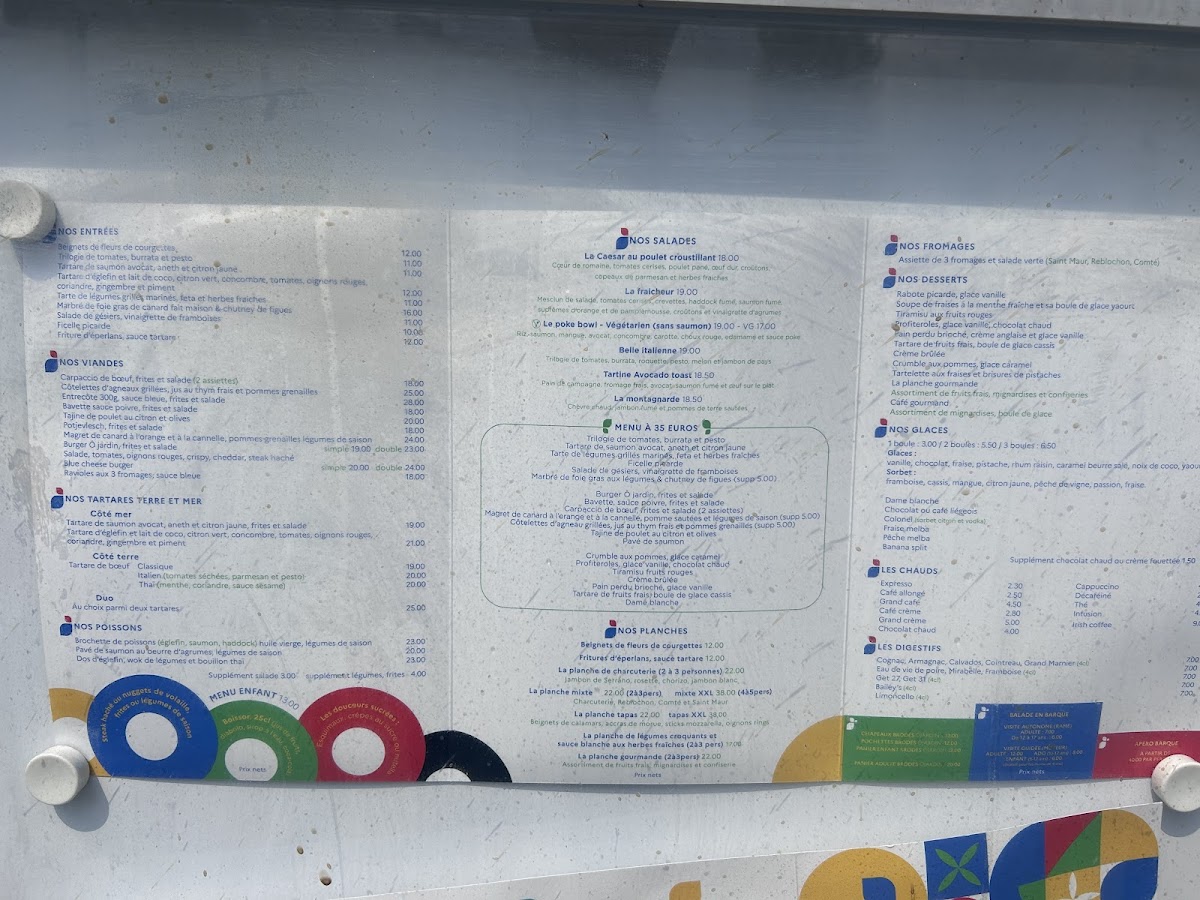 NOS ENTRÉES
Beignets de fleurs de courgettes 12.00
Trilogie de tomates, burrata et pesto 11.00
Tartare de saumon avocat, aneth et citron jaune 11.00
Tartare d'églefin et lait de coco, citron vert, concombre, tomates, oignons rouges,
coriandre, gingembre et piment 12.00
Tarte de légumes grillés marinés, feta et herbes fraîches 11.00
Marbré de foie gras de canard fait maison & chutney de figues 16.00
Salade de gésiers, vinaigrette de framboises 11.00
Ficelle picarde 10.00
Friture d'éperlans, sauce tartare 12.00
NOS VIANDES
Carpaccio de bœuf, frites et salade (2 assiettes) 18.00
Côtelettes d'agneaux grillées, jus au thym frais et pommes grenailles 25.00
Entrecôte 300g, sauce bleue, frites et salade 28.00
Bavette sauce poivre, frites et salade 18.00
Tajine de poulet au citron et olives 20.00
Potjevlesch, frites et salade 18.00
Magret de canard à l'orange et à la cannelle, pommes grenailles légumes de saison 24.00
Burger Ô jardin, frites et salade simple 19.00 double 23.00
Salade, tomates, oignons rouges, crispy, cheddar, steak haché
Blue cheese burger simple 20.00 double 24.00
Ravioles aux 3 fromages, sauce bleue 18.00
NOS TARTARES TERRE ET MER
Côté mer
Tartare de saumon avocat, aneth et citron jaune, frites et salade 19.00
Tartare d'églefin et lait de coco, citron vert, concombre, tomates, oignons rouges,
coriandre, gingembre et piment 21.00
Côté terre
Tartare de bœuf Classique 19.00
Italien (tomates séchées, parmesan et pesto) 20.00
Thaï (menthe, coriandre, sauce sésame) 20.00
Duo
Au choix parmi deux tartares 25.00
NOS POISSONS
Brochette de poissons (églefin, saumon, haddock) huile vierge, légumes de saison 23.00
Pavé de saumon au beurre d'agrumes, légumes de saison 20.00
Dos d'églefin, wok de légumes et bouillon thaï 23.00
Supplément salade 3.00 supplément légumes, frites 4.00
Steak haché ou nuggets de volaille,
frites ou légumes de saison
MENU ENFANT 13.00
Boisson 25cl
Prix nets
Les douceurs sucrées :
NOS SALADES
La Caesar au poulet croustillant 18.00
Cœur de romaine, tomates cerises, poulet pané, œuf dur, croûtons,
copeaux de parmesan et herbes fraîches
La fraicheur 19.00
Mesclun de salade, tomates cerises, crevettes, haddock fumé, saumon fumé,
suprêmes d'orange et de pamplemousse, croûtons et vinaigrette d'agrumes
Le poke bowl - Végétarien (sans saumon) 19.00 - VG 17.00
Riz, saumon, mangue, avocat, concombre, carotte, choux rouge, edamame et sauce poke
Belle italienne 19.00
Trilogie de tomates, burrata, roquette, pesto, melon et jambon de pays
Tartine Avocado toast 18.50
Pain de campagne, fromage frais, avocat, saumon fumé et œuf sur le plat
La montagnarde 18.50
Chèvre chaud, jambon fumé et pommes de terre sautées
MENU À 35 EUROS
Trilogie de tomates, burrata et pesto
Tartare de saumon avocat, aneth et citron jaune
Tarte de légumes grillés marinés, feta et herbes fraîches
Ficelle picarde
Salade de gésiers, vinaigrette de framboises
Marbré de foie gras aux légumes & chutney de figues (supp 5.00)
Burger Ô jardin, frites et salade
Bavette, sauce poivre, frites et salade
Carpaccio de bœuf, frites et salade (2 assiettes)
Magret de canard à l'orange et à la cannelle, pomme sautées et légumes de saison (supp 5.00)
Côtelettes d'agneau grillées, jus au thym frais et pommes grenailles (supp 5.00)
Tajine de poulet au citron et olives
Pavé de saumon
Crumble aux pommes, glace caramel
Profiteroles, glace vanille, chocolat chaud
Tiramisu fruits rouges
Crème brûlée
Pain perdu brioché, glace vanille
Tartare de fruits frais, boule de glace cassis
Dame blanche
NOS PLANCHES
Beignets de fleurs de courgettes 12.00
Fritures d'éperlans, sauce tartare 12.00
La planche de charcuterie (2 à 3 personnes) 22.00
Jambon de Serrano, rosette, chorizo, jambon blanc
La planche mixte 22.00 (2à3pers) mixte XXL 38.00 (4à5pers)
Charcuterie, Reblochon, Comté et Saint Maur
La planche tapas 22.00 tapas XXL 38.00
Beignets de calamars, accras de morue, sticks mozzarella, oignons rings
La planche de légumes croquants et
sauce blanche aux herbes fraîches (2à3 pers) 17.00
La planche gourmande (2à3pers) 22.00
Assortiment de fruits frais, mignardises et confiserie
Prix nets
NOS FROMAGES
Assiette de 3 fromages et salade verte (Saint Maur, Reblochon, Comté)
NOS DESSERTS
Rabote picarde, glace vanille
Soupe de fraises à la menthe fraîche et sa boule de glace yaourt
Tiramisu aux fruits rouges
Profiteroles, glace vanille, chocolat chaud
Pain perdu brioché, crème anglaise et glace vanille
Tartare de fruits frais, boule de glace cassis
Crème brûlée
Crumble aux pommes, glace caramel
Tartelette aux fraises et brisures de pistaches
La planche gourmande
Assortiment de fruits frais, mignardises et confiseries
Café gourmand
Assortiment de mignardises, boule de glace
NOS GLACES
1 boule : 3.00 / 2 boules : 5.50 / 3 boules : 6.50
Glaces :
vanille, chocolat, fraise, pistache, rhum raisin, caramel beurre salé, noix de coco,
Sorbet :
framboise, cassis, mangue, citron jaune, pêche de vigne, passion, fraise
Dame blanche
Chocolat ou café liégeois
Colonel (sorbet citron et vodka)
Fraise melba
Pêche melba
Banana split
Supplément chocolat chaud ou crème fouettée 1.50
LES CHAUDS
Expresso 2.30 Cappuccino
Café allongé 2.50 Décaféiné
Grand café 4.50 Thé
Café crème 2.80 Infusion
Grand crème 5.00 Irish coffee
Chocolat chaud 4.00
LES DIGESTIFS
Cognac, Armagnac, Calvados, Cointreau, Grand Marnier (4cl) 7.00
Eau de vie de poire, Mirabelle, Framboise (4cl) 7.00
Get 27, Get 31 (4cl) 7.00
Bailey's (4cl) 7.00
Limoncello (4cl)
BALADE EN BARQUE
Prix nets
APERO BARQUE
À PARTIR DE